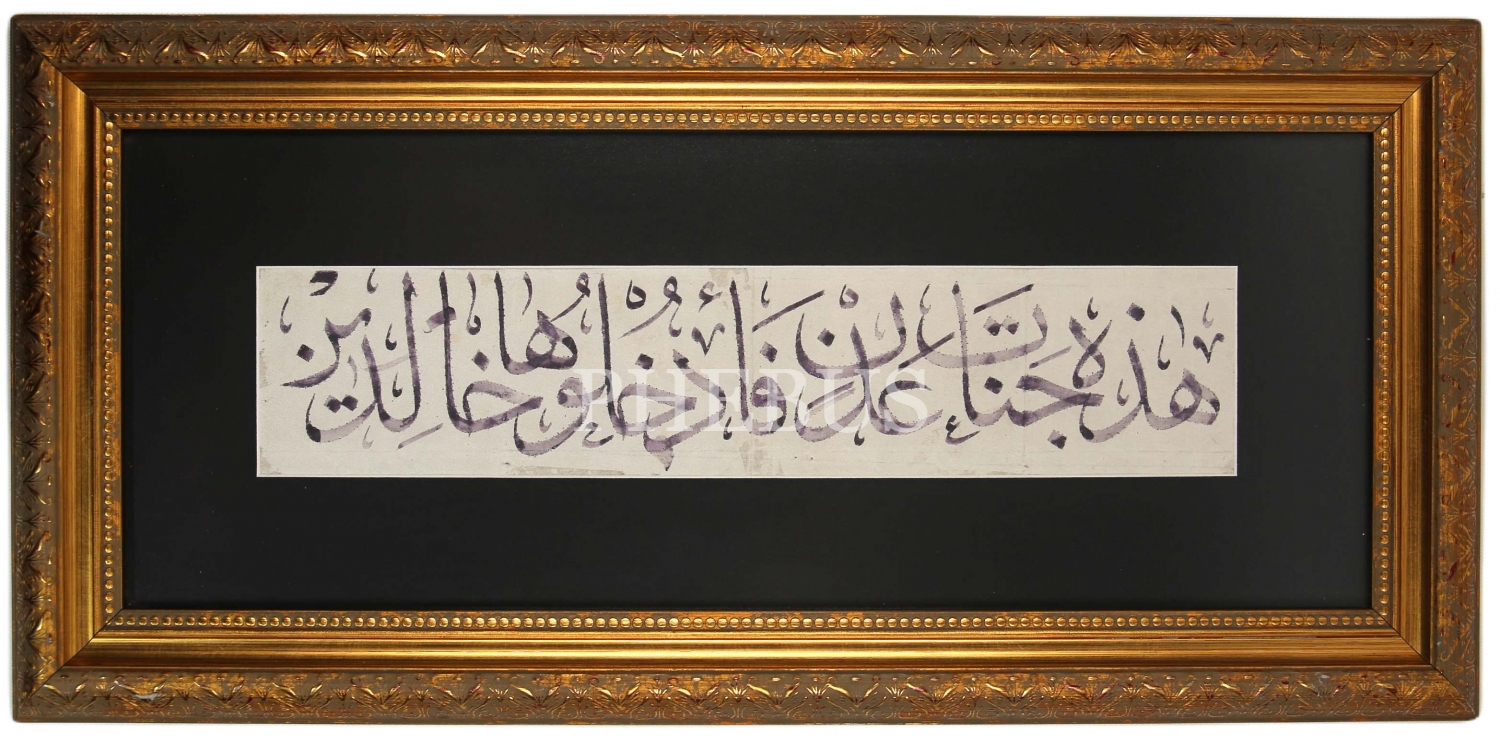 هذه جنات عدن فادخلوها خالدين
PHEBUS